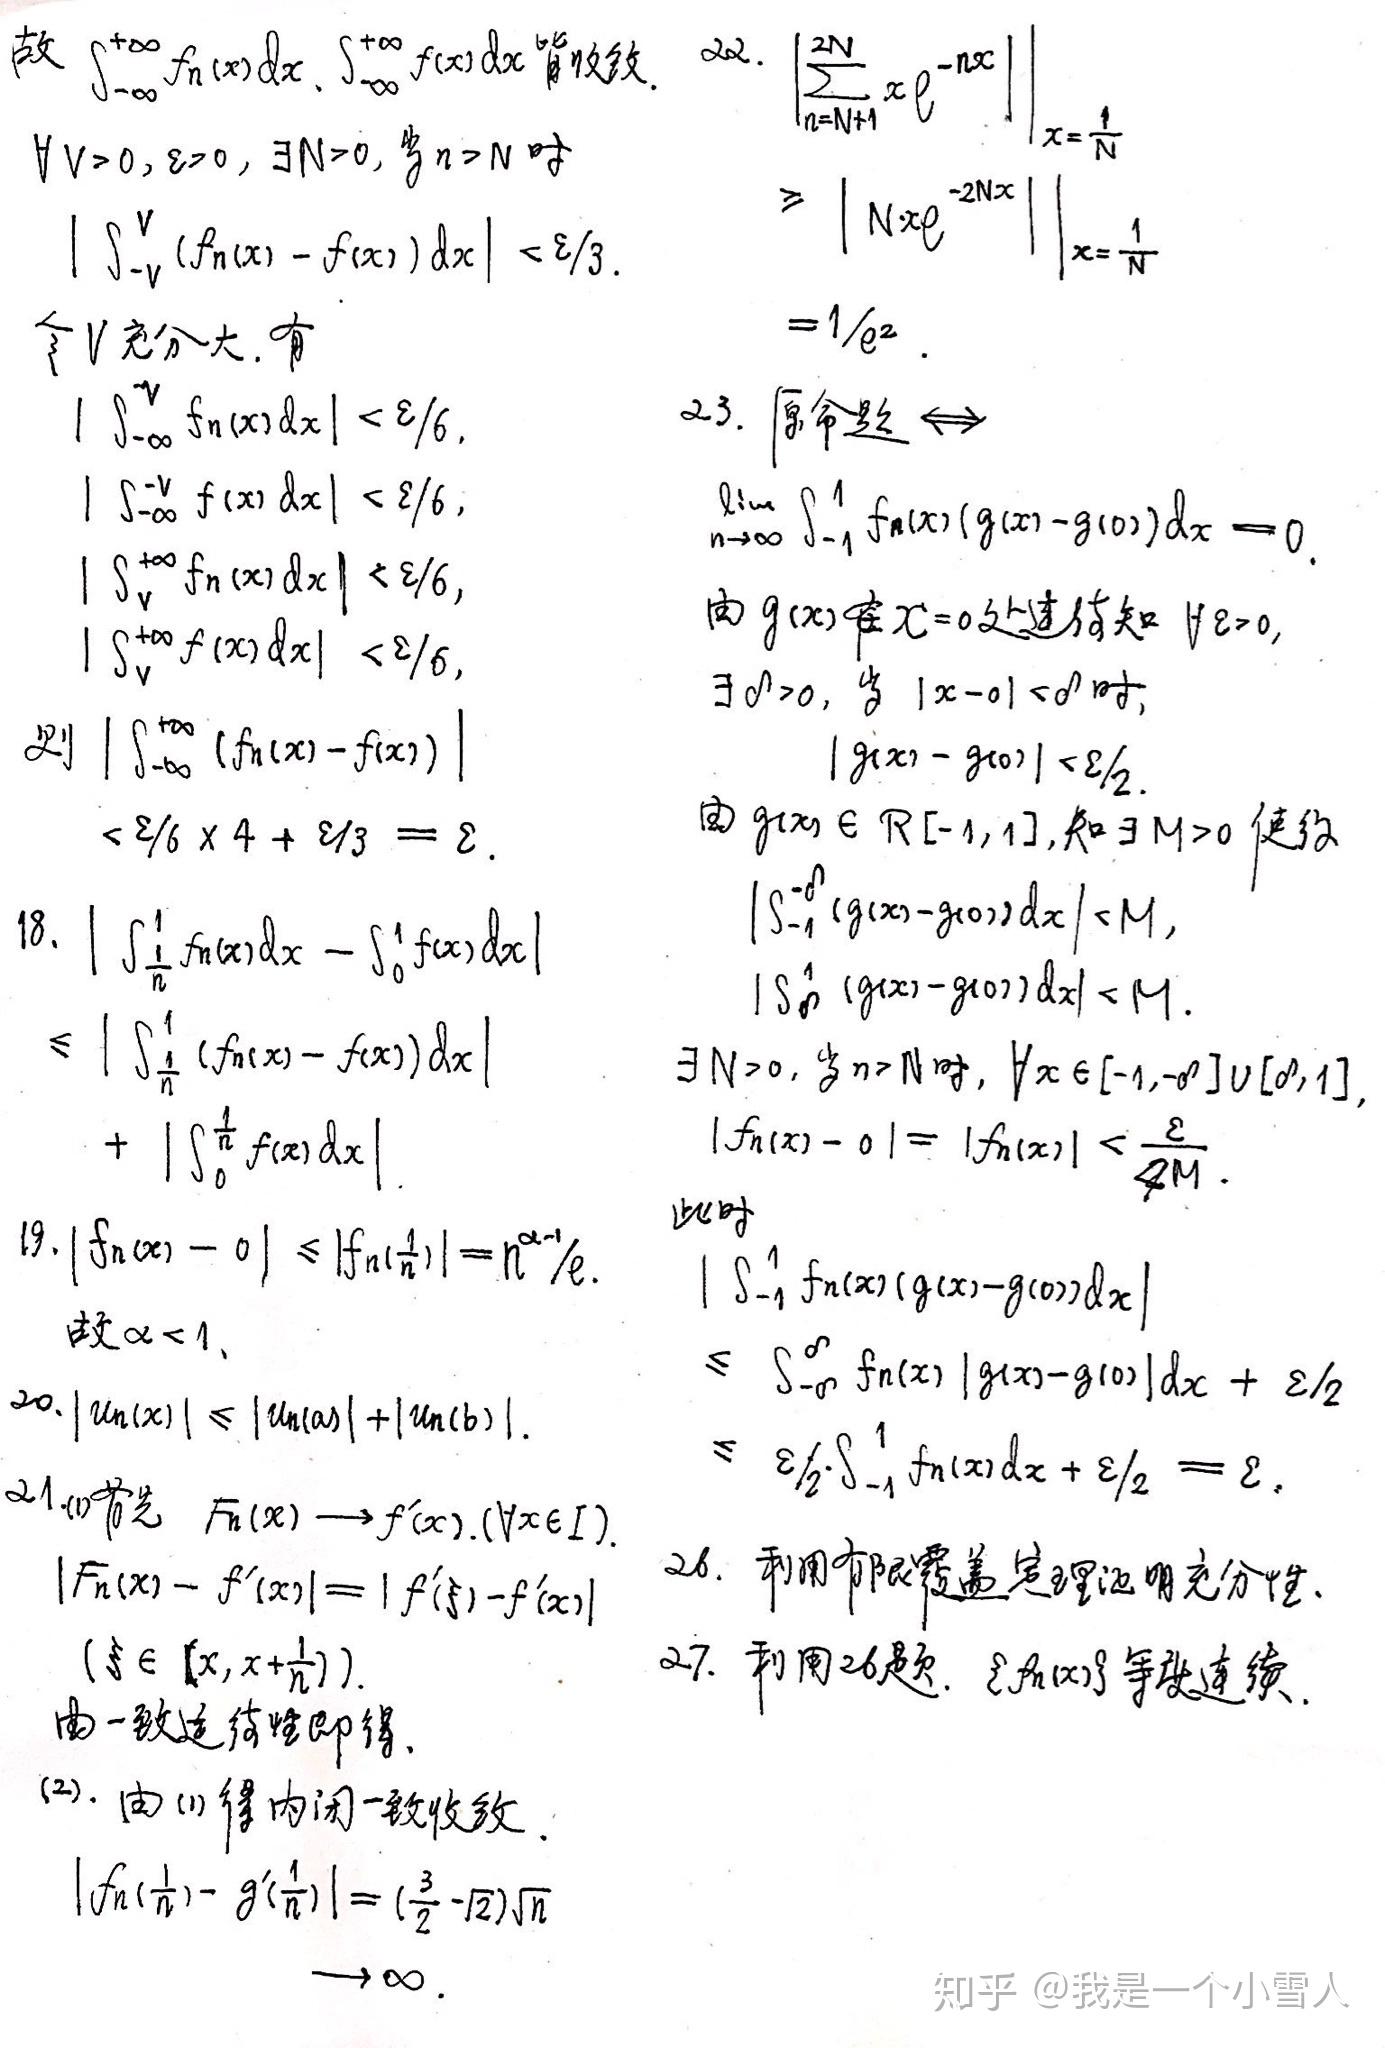 故 ∫_{-∞}^{+∞} fn(x)dx、∫_{-∞}^{+∞} f(x)dx 皆收敛.
∀V>0, ε>0, ∃N>0, 当n>N时
|∫_{-V}^{V} (fn(x) - f(x))dx| < ε/3.
令V充分大.有
|∫_{-∞}^{-V} fn(x)dx| < ε/6,
|∫_{-∞}^{-V} f(x)dx| < ε/6,
|∫_{V}^{+∞} fn(x)dx| < ε/6,
|∫_{V}^{+∞} f(x)dx| < ε/6,
则 |∫_{-∞}^{+∞} (fn(x) - f(x))|
< ε/6 × 4 + ε/3 = ε.
18. |∫_{1/n}^{1} fn(x)dx - ∫_{0}^{1} f(x)dx|
≤ |∫_{1/n}^{1} (fn(x) - f(x))dx|
+ |∫_{0}^{1/n} f(x)dx|.
19. |fn(x) - 0| ≤ |fn(1/n)| = n^{α-1}/e.
故α<1、
20. |un(x)| ≤ |un(a)| + |un(b)|.
21.(1)首先 Fn(x) → f'(x).(∀x∈I).
|Fn(x) - f'(x)| = |f'(ξ) - f'(x)|
(ξ∈[x, x+1/n]).
由一致连续性即得、
(2). 由(1)得内闭一致收敛.
|fn(1/n) - g'(1/n)| = (3/2 - √2)√n
→∞.
22. |∑_{n=N+1}^{2N} xe^{-nx}| |_{x=1/N}
≥ |N·xe^{-2Nx}| |_{x=1/N}
= 1/e².
23. 原命题 ⟺
lim_{n→∞} ∫_{-1}^{1} fn(x)(g(x)-g(0))dx = 0.
由g(x)在x=0处连续知 ∀ε>0,
∃δ>0, 当 |x-0|<δ时,
|g(x) - g(0)| < ε/2.
由g(x)∈R[-1,1],知∃M>0使得
|∫_{-1}^{-δ} (g(x)-g(0))dx| < M,
|∫_{δ}^{1} (g(x)-g(0))dx| < M.
∃N>0, 当n>N时, ∀x∈[-1,-δ]∪[δ,1],
|fn(x) - 0| = |fn(x)| < ε/4M.
此时
|∫_{-1}^{1} fn(x)(g(x)-g(0))dx|
≤ ∫_{-δ}^{δ} fn(x) |g(x)-g(0)|dx + ε/2
≤ ε/2·∫_{-1}^{1} fn(x)dx + ε/2 = ε.
26. 利用有限覆盖定理证明充分性、
27. 利用26题. {fn(x)}等度连续.
知乎 @我是一个小雪人